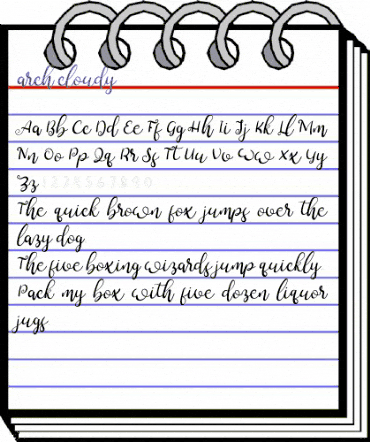 arch cloudy
Aa Bb Cc Dd Ee Ff Gg Hh Ii Jj Kk Ll Mm
Nn Oo Pp Qq Rr Ss Tt Uu Vv Ww Xx Yy
Zz 1234567890
The quick brown fox jumps over the
lazy dog
The five boxing wizards jump quickly
Pack my box with five dozen liquor
jugs